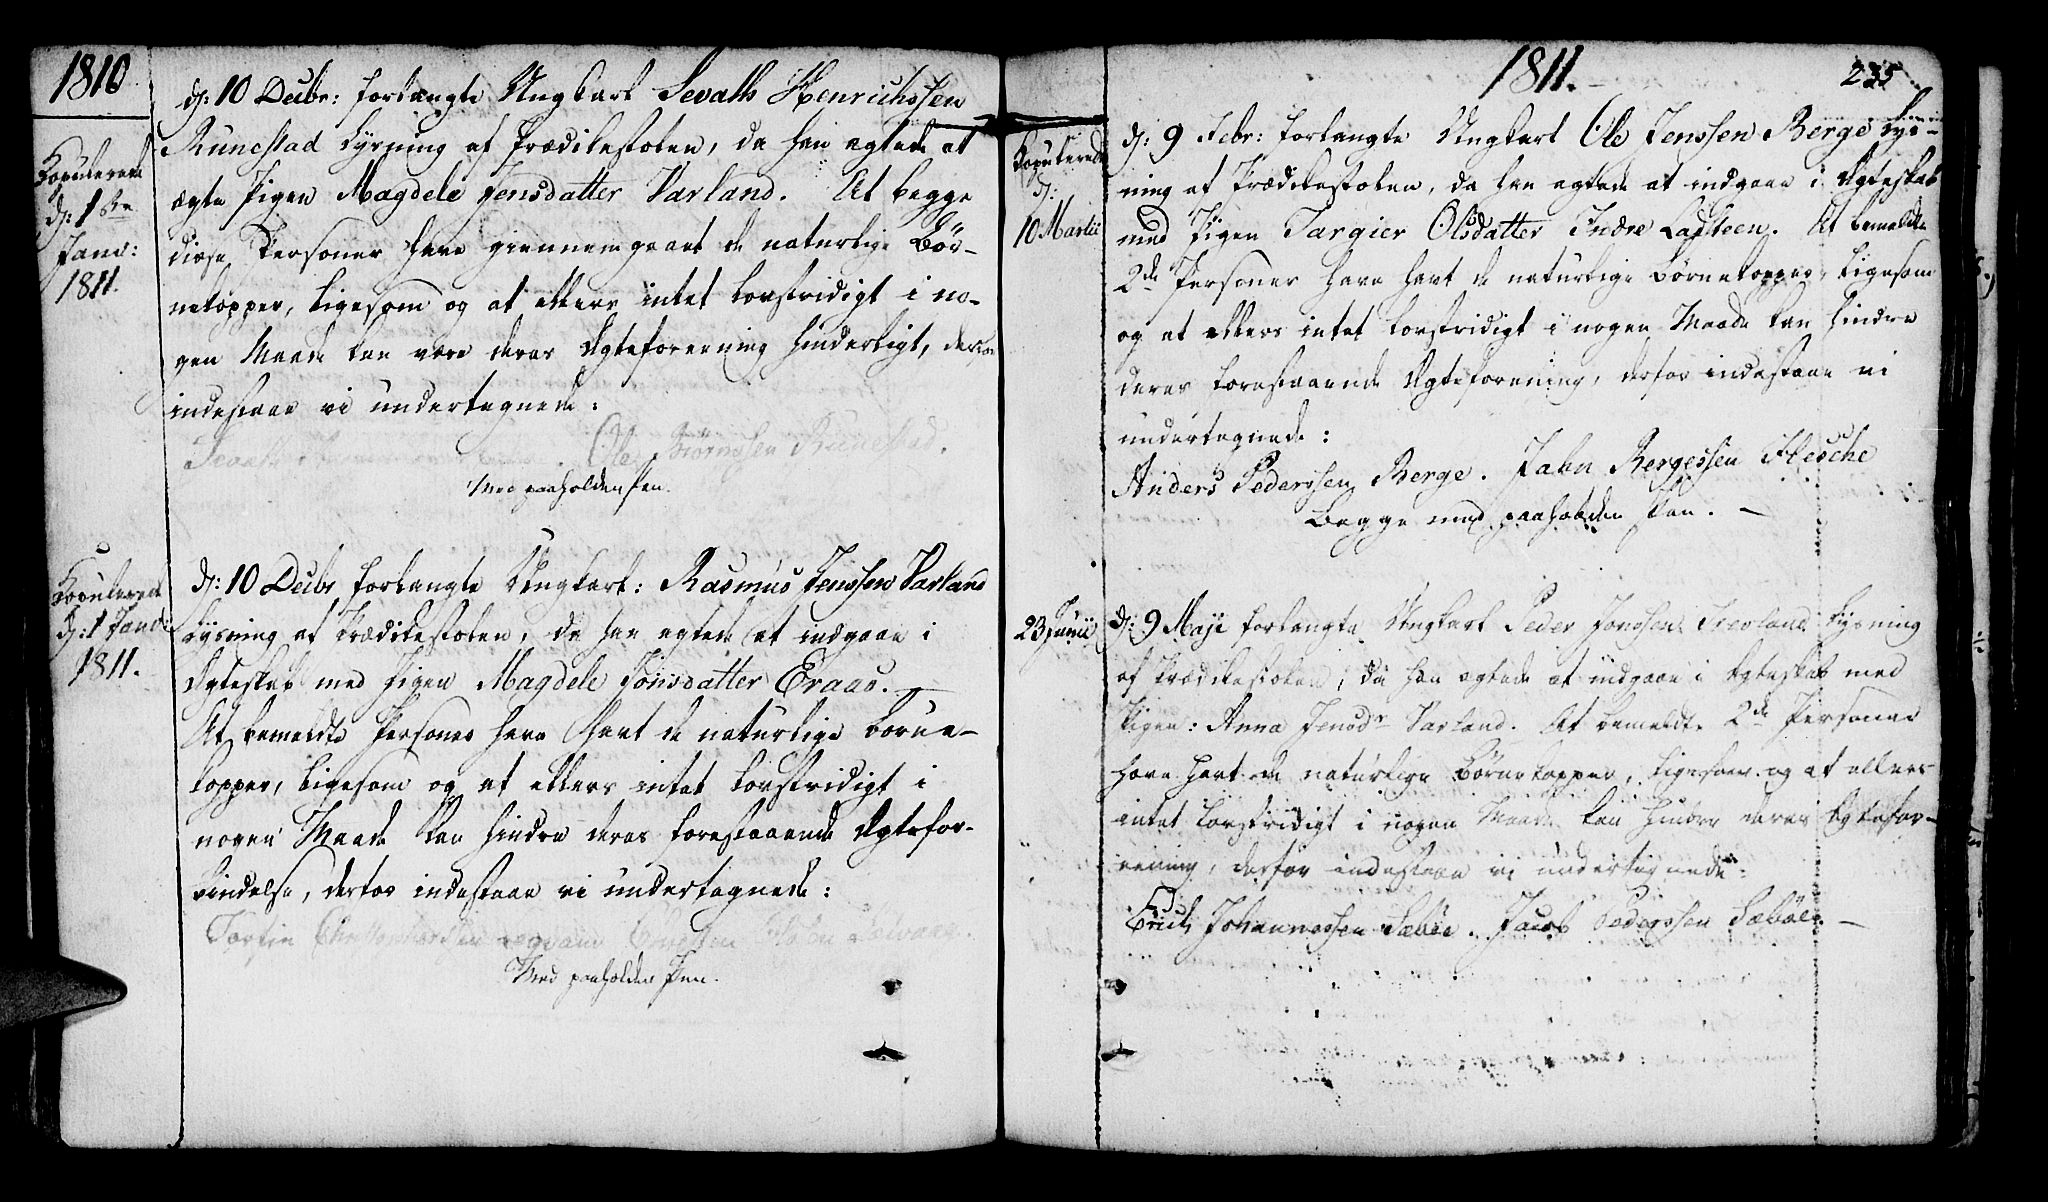 1810
Copulerede
d: 1ste
Janv:
1811.
d: 10 Decbr: forlangte Ungkarl Sevath Henrichssen
Runestad Lysning af Prædikestolen, da han agtede at
ægte Pigen Magdele Jensdatter Varland. At begge
disse Personer have giennemgaaet de naturlige Bör-
nekopper, ligesom og at ellers intet lovstridigt i no-
gen Maade kan være deres Ægteforeening hinderligt, derfor
indestaae vi undertegnede:
Ole Biörnssen Runestad.
Med paaholden Pen.
Copulerede
d: 1 Janv:
1811.
d: 10 Decbr forlangte Ungkarl: Rasmus Jenssen Varland
Lysning af Prædikestolen, da han agtede at indgaae i
Ægteskab med Pigen Magdele Jonsdatter Eraas.
At bemeldte Personer have havt de naturlige Börne-
kopper, ligesom og at ellers intet lovstridigt i
nogen Maade kan hindre deres forestaaende Ægtefor-
bindelse, derfor indestaae vi undertegnede:
Med paaholden Pen.
1811.
235
Copulerede
d:
10 Martii
d: 9 Febr: forlangte Ungkarl Ole Jenssen Berge Lys-
ning af Prædikestolen, da han agtede at indgaae i Ægteskab
med Pigen Targier Olsdatter Indre Ladsteen. At bemeldte
2de Personer have havt de naturlige Börnekopper, ligesom
og at ellers intet lovstridigt i nogen Maade kan hindre
deres forestaaende Ægteforening, derfor indestaae vi
undertegnede:
Anders Pederssen Berge. Jaber Bergessen Flesche
Begge med paaholden Pen.
23 Junii
d: 9 Maji forlangte Ungkarl Peder Jonssen Lysning
af Prædikestolen, da han agtede at indgaae i Ægteskab med
Pigen: Anna Jensdr Varland. At bemeldte 2de Personer
have havt de naturlige Börnekopper, ligesom og at ellers
intet lovstridigt i nogen Maade kan hindre deres Ægtefor-
eening, derfor indestaae vi undertegnede:
Erick Johannessen Sæböe. Jacob Pederssen Sæböe.